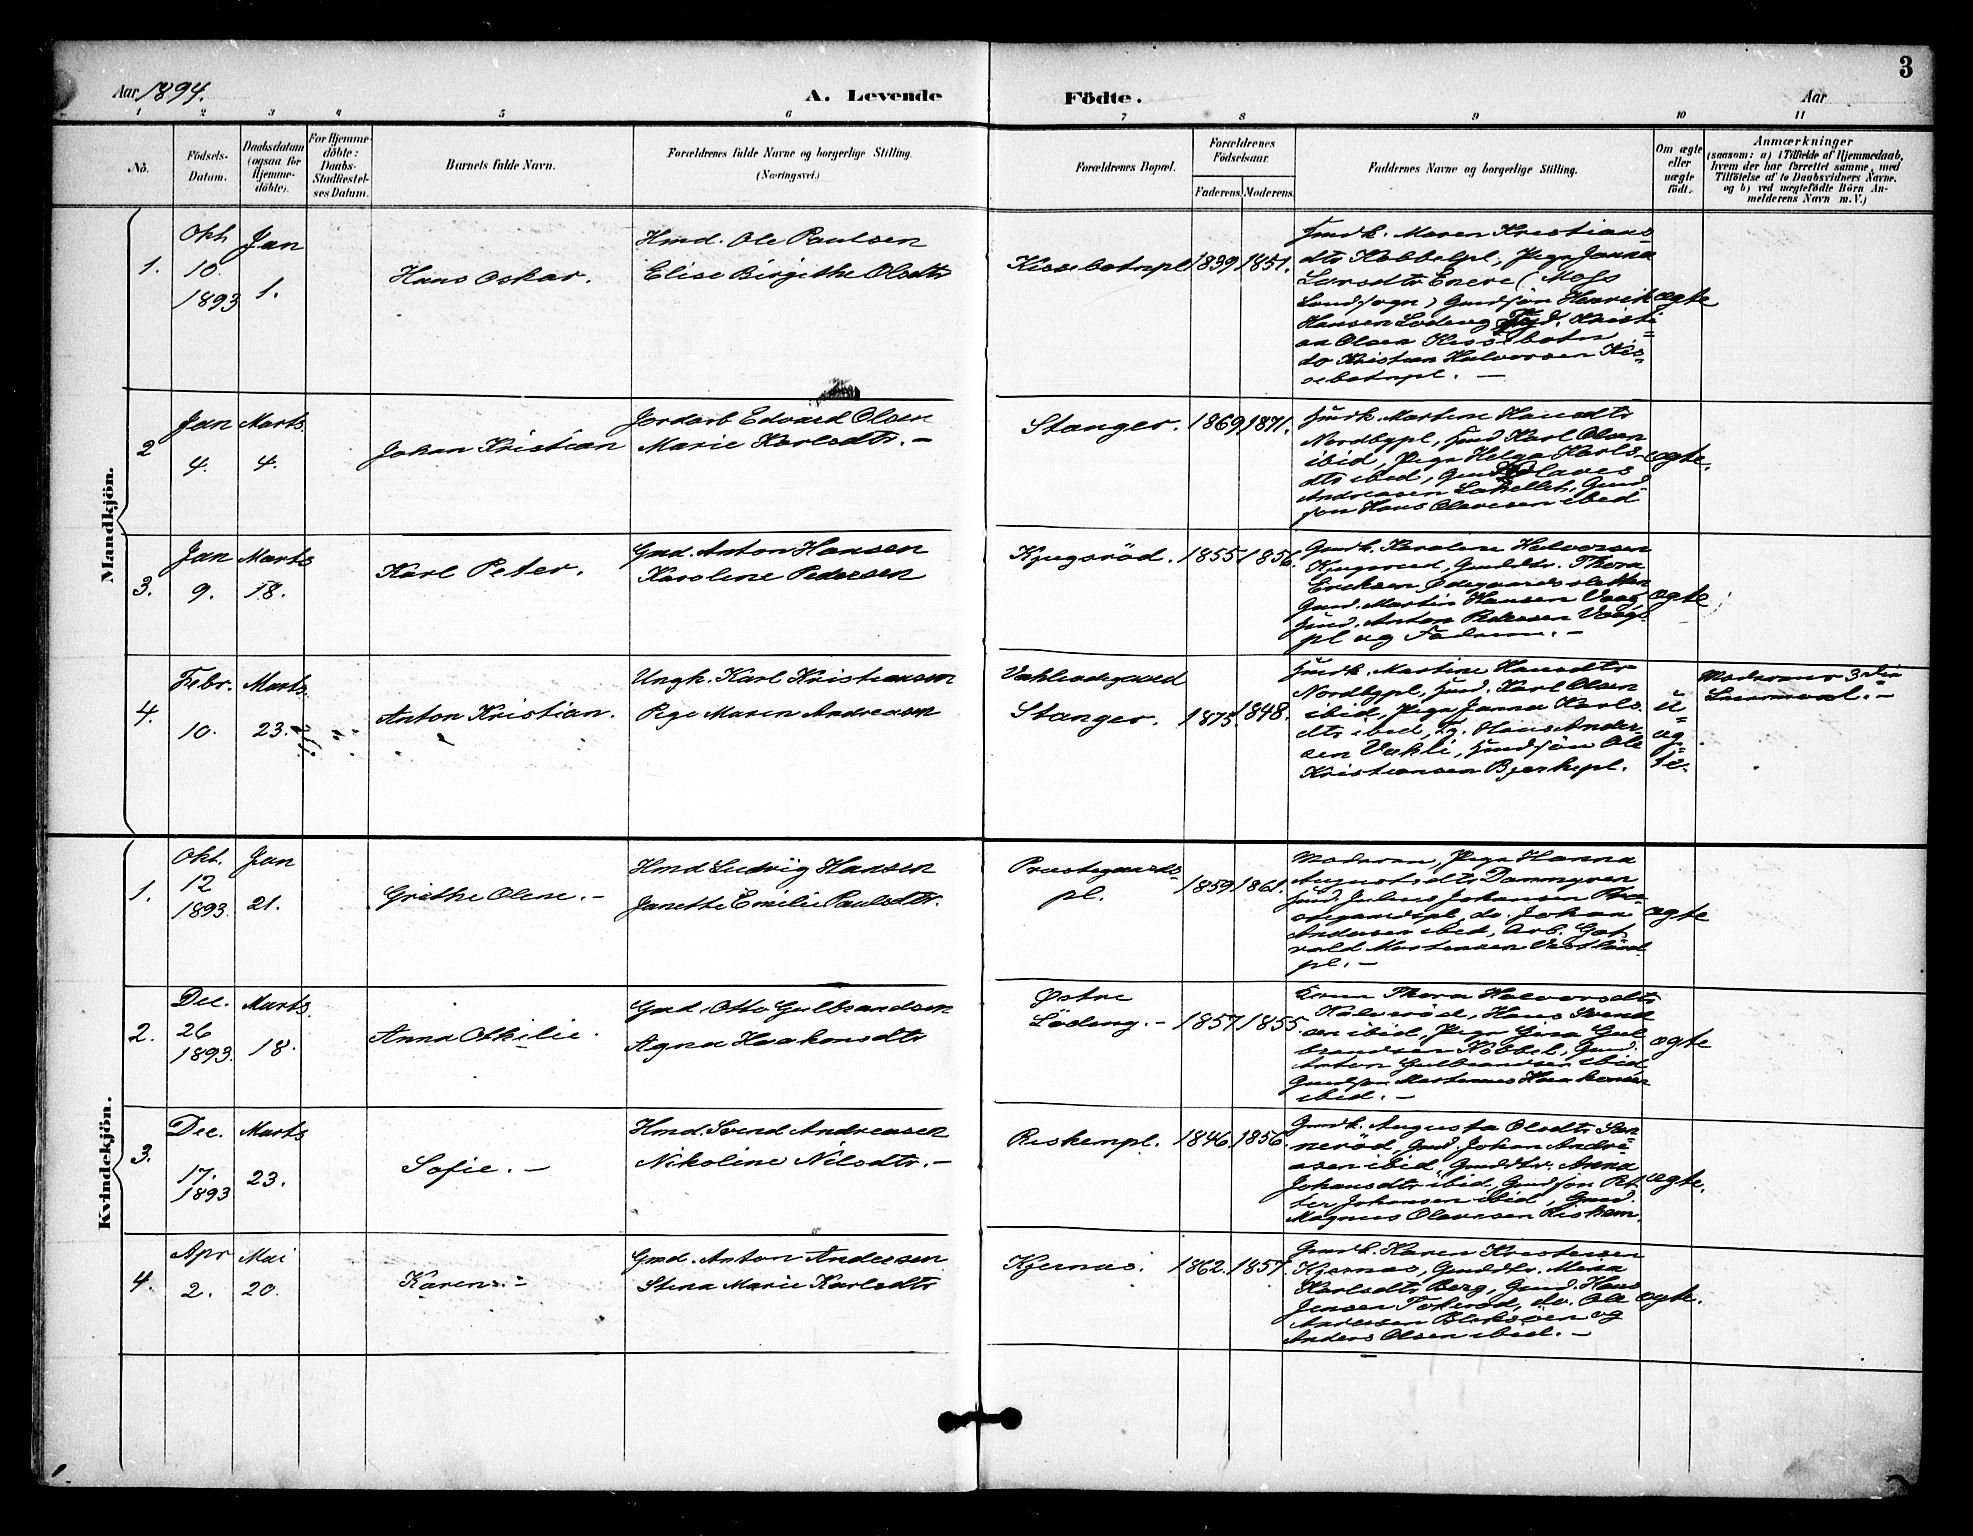 3
Aar 1894.
A. Levende
Födte.
Aar
1 2 3 4 5 6 7 8 9 10 11
No.
Födsels-
Datum.
Daabsdatum
(ogsaa for
Hjemme-
döbte).
For Hjemme-
döbte:
Daabs-
Stadfæstel-
ses Datum.
Barnets fulde Navn.
Forældrenes fulde Navne og borgerlige Stilling.
(Næringsvei.)
Forældrenes Bopæl.
Forældrenes
Födselsaar.
Faderens. Moderens.
Faddernes Navne og borgerlige Stilling.
Om ægte
eller
uægte
födt.
Anmærkninger
(saasom: a) i Tilfælde af Hjemmedaab,
hvem der har forrettet samme, med
Tilföielse af to Daabsvidners Navne.
og b) ved uægtefödte Börn An-
melderens Navn m. V.)
Mandkjön.
1.
Okt
10.
1893
Jan
1.
Hans Oskar.
Hmd. Ole Paulsen
Elise Birgithe Olsdtr
Kissebotnpl
1839
1851.
Hmdk. Maren Kristians
dtr Kobbelpl, Pige Janna
Larsdtr Enere (Moss
Landsogn) Gmdsøn Henrik
Hansen Lødeng Kristi
an Olsen Kissebotn
do Kristian Halvorsen Kis
sebotnpl. —
ægte
2
Jan
4.
Marts.
4.
Johan Kristian
Jordarb Edvard Olsen
Marie Karlsdtr. —
Stanger.
1869
1871.
Hmdk. Martine Hansdtr
Nordbypl, Hmd Karl Olsen
ibid, Pige Helga Karls
dtr ibid, Olaves
Andreasen Gmd
søn Hans Olavesen ibid
ægte.
3.
Jan
9.
Marts
18.
Karl Peter.
Gmd. Anton Hansen
Karoline Pedersen
Kjugsröd.
1855
1856.
Gmdk. Karoline Halvorsen
Gmddtr. Thora
Eriksen Ødegaardssletten
Gmd. Martin Hansen Vaag
Hmd. Anton Pedersen Vaag
pl og Faderen. —
ægte
4.
Febr.
10.
Marts.
23.
Anton Kristian.
Ungk. Karl Kristiansen
Pige Maren Andreasen
Stanger.
1875.
1848.
Hmdk. Martine Hansdtr
Nordbypl, Hmd. Karl Olsen
ibid, Pige Janna Karls
dtr ibid, Hans Ander-
sen Vakli, Hmdsøn Ole
Kristiansen Bjerkepl.
u=
æg=
te.
Moderens 3die
Leiermaal. —
Kvindekjön.
1.
Okt.
12
1893.
Jan
21.
Grethe Olene. —
Hmd Ludvig Hansen
Janette Emilie Paulsdtr.
Præstegaards
pl.
1859
1861.
Moderen, Pige Hanna
Augustsdtr Dammyren
Hmd. Julius Johansen Præ
stegaardspl, do. Johan
Andersen ibid, Arb. Got
vald Mortensen
pl. —
ægte
2.
Dec.
26
1893.
Marts.
18.
Anna Othilie.
Gmd. Otto Gulbrandsen
Agna Haakonsdtr
Østre
Lödeng. —
1857
1855.
Enne Thora Halvorsdtr
Hans Svend
sen ibid, Pige Gina Gul
brandsen Kobbel, Gmd.
Anton Gulbrandsen ibid,
Gmdsøn Martinus Haakonsen
ibid. —
ægte
3.
Dec.
17.
1893
Marts
23.
Sofie. —
Hmd. Svend Andreasen
Nikoline Nilsdtr. —
Riskempl.
1846.
1856.
Gmdk. Augusta Olsdtr Son
neröd, Gmd. Johan Andre
asen ibid, Gmddtr. Anna
Johansdtr ibid, Gmdsøn Pet
ter Johansen ibid, Gmd.
Magnus Olavesen Riskem.
ægte.
4.
Apr
2.
Mai
20.
Karen. —
Gmd. Anton Andersen
Stina Marie Karlsdtr
Kjernæs.
1862.
1857.
Gmdk. Karen Kristensen
Kjernæs, Gmddtr. Mina
Karlsdtr Berg, Gmd. Hans
Jensen Tokeröd, do. Ole
Andersen og
Anders Olsen ibid. —
ægte.